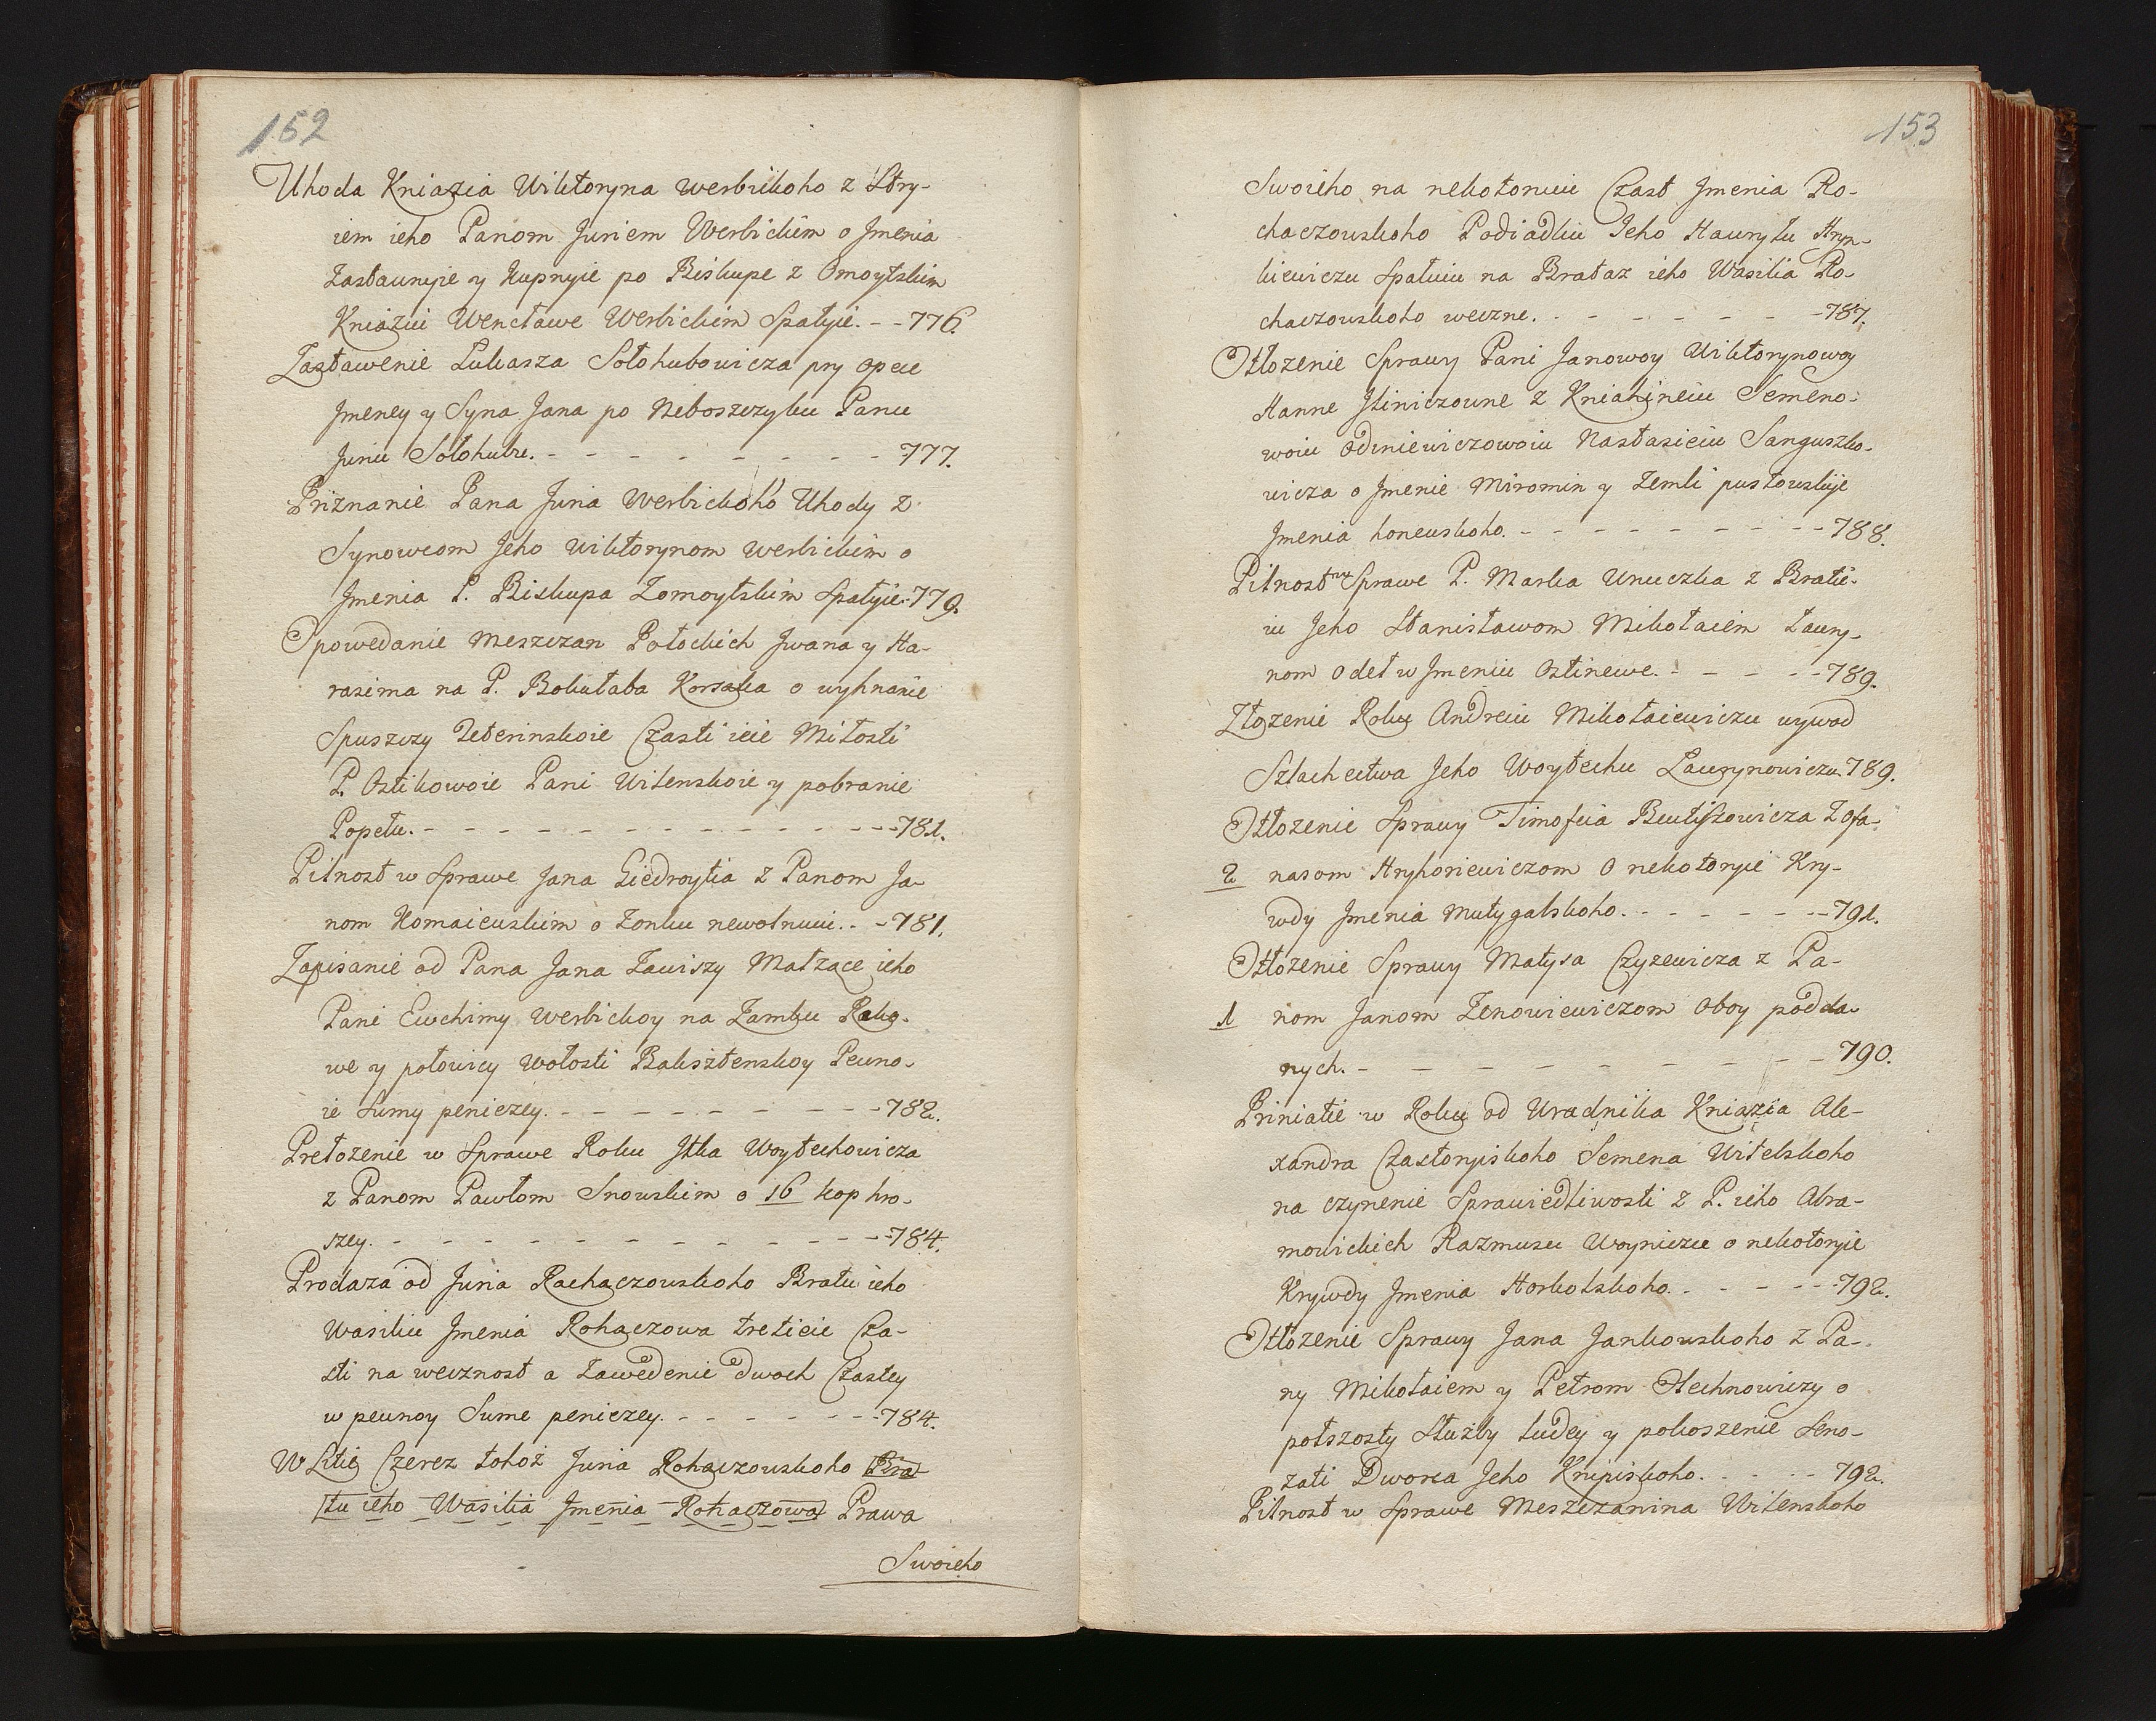 152
Uhoda Kniazia Wiktoryna Werbickoho z Stry-
iem ieho Panom Juriem Werbickim o Jmenia
Zastaunyie y Kupnyie po Biskupe z Omoytskim
Kniaziu Wencławe Werbickim Spałyie. - - 776.
Zastawenie Łukasza Sołohubowicza pry opece
Jmeney y Syna Jana po Neboszczyku Panu
Juriu Sołohube. - - - - - - - - 777.
Priznanie Pana Juria Werbickoho Uhody z
Synowcom Jeho Wiktorynom Werbickim o
Jmenia P. Biskupa Zomoytskim Spałyie. 779.
Spowedanie Meszczan Połockich Jwana y Ha-
rasima na P. Bohutaba Korsaka o wyhnanie
Spuszczy Zeterinskoie Czasti ieie Miłosti
P. Ostikowoie Pani Wilenskoie y pobranie
Popełu. - - - - - - - - - - - - 781.
Pilnost w Sprawe Jana Giedroytia z Panom Ja-
nom Komaiewskim o Zonku newolnuiu. - - 781.
Zapisanie od Pana Jana Zawiszy Małzące ieho
Pani Ewchimy Werbickoy na Zamku Rako-
we y połowicy Wołosti Baksztenskoy Pewno-
ie Sumy peniezey. - - - - - - - - 782.
Prełozenie w Sprawe Roku Jtka Woytechowicza
z Panom Pawłom Snowskim o 16 kop hro-
szey. - - - - - - - - - - - - 784.
Prodaza od Juria Rachaczouskoho Bratu ieho
Wasiliu Jmenia Rohaczowa treticie Cza-
sti na wecznost a Zawedenie dwoch Czastey
w peunoy Sume peniezey. - - - - - - 784.
W Litię Czerez tohoż Juria Rohaczouskoho Bra-
tu ieho Wasilia Jmenia Rohaczowa Prawa
Swoieho
153
Swoieho na nekotoruiu Czast Jmenia Ro-
chaczouskoho Podiadku Jeho Hauryłu Hryn-
kiewiczu Spałuiu na Brataz ieho Wasilia Ro-
chaczouskoho weczne. - - - - - - 787.
Otłozenie Sprawy Pani Janowoy Wiktorynowoy
Hanne Jliniczoune z Kniahineiu Semeno-
woiu Odiniewiczowoiu Nastasieiu Sanguszko-
wicza o Jmenie Miromin y Zemli pustouskije
Jmenia honeuskoho. - - - - - - - - 788.
Pilnost w Sprawe P. Marka Unuczka z Bratie-
iu Jeho Stanisławom Mikołaiem Zaury-
nom o deł w Jmeniu Ostinewe. - - - - - 789.
Złozenie Roku Andreiu Mikołaiewiczu wywod
Szlachectwa Jeho Woytechu Laurynowiczu. 789.
Otłozenie Sprawy Timofeia Beutiszowicza Z ofa-
2 nasom Hryhoriewiczom o nekotoryie Kry-
wdy Jmenia Mutygalskoho. - - - - - - - 791.
Otłozenie Sprawy Matysa Czyzewicza z Pa-
1 nom Janom Zenowiewiczom oboy podda-
nych. - - - - - - - - - 790.
Priniatie w Roku od Uradnika Kniazia Ale-
xandra Czastoryiskoho Semena Witelskoho
na czynenie Sprawiedliwosti z P. ieho Abra-
mowickich Razmusu Woyniczu o nekotoryie
Krywdy Jmenia Horkolskoho. - - - - - 792.
Otłozenie Sprawy Jana Jankowskoho z Pa-
ny Mikołaiem y Petrom Stechnowiczy o
połszosty Słuzby ludey y pokoszenie Seno-
zati Dworca Jeho Knipiskoho. - - - - 792.
Pilnost w Sprawe Meszczanina Wilenskoho